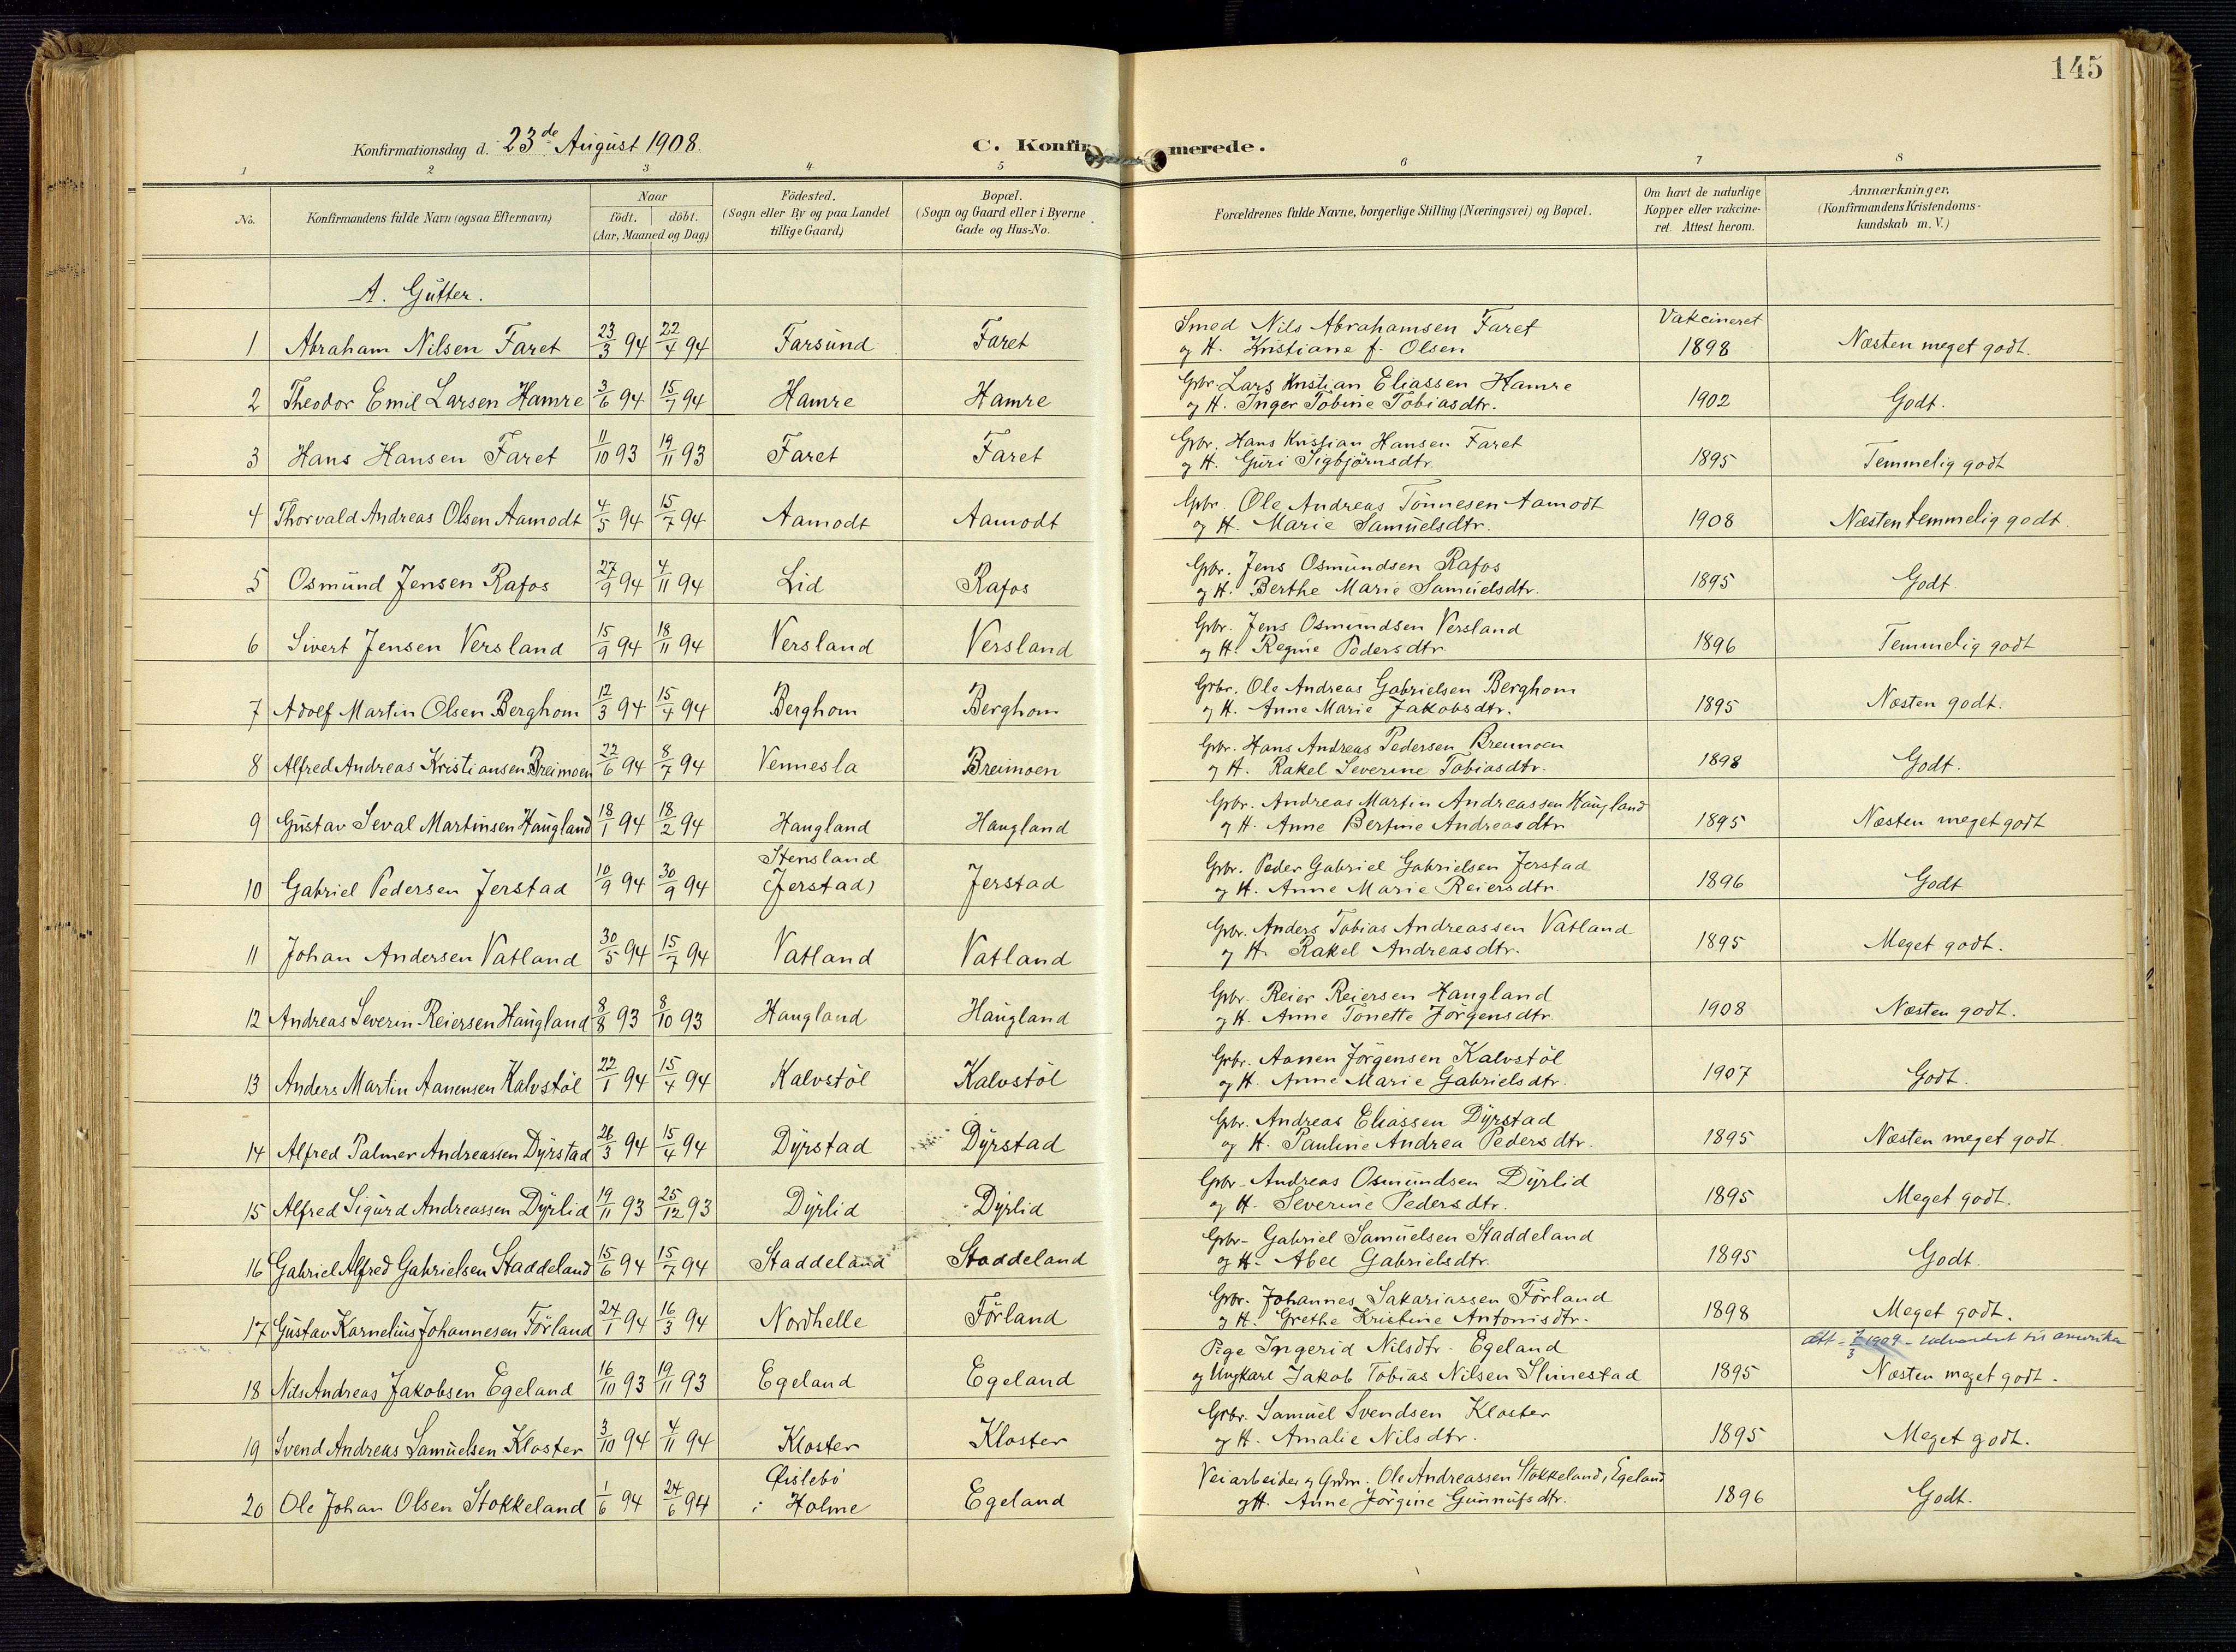 145
Konfirmationsdag d. 23de August 1908.
C. Konfirmerede.
1 2 3 4 5 6 7 8
No.
Konfirmandens fulde Navn (ogsaa Efternavn)
Naar
födt. döbt.
(Aar, Maaned og Dag)
Födested.
(Sogn eller By og paa Landet
tillige Gaard)
Bopæl.
(Sogn og Gaard eller i Byerne
Gade og Hus-No.
Forældrenes fulde Navne, borgerlige Stilling (Næringsvei) og Bopæl.
Om havt de naturlige
Kopper eller vakcine-
ret. Attest herom.
Anmærkninger,
(Konfirmandens Kristendoms-
kundskab m. V.)
A. Gutter.
Smed Nils Abrahamsen Faret Vakcineret
1 Abraham Nilsen Faret 23/3 94 22/4 94 Farsund Faret og H. Kristiane f. Olsen 1898 Næsten meget godt.
Gbr. Lars Kristian Eliassen Hamre
2 Theodor Emil Larsen Hamre 3/6 94 15/7 94 Hamre Hamre og H. Inger Tobine Tobiasdtr. 1902 Godt.
Gbr. Hans Kristian Hansen Faret
3 Hans Hansen Faret 11/10 93 19/11 93 Faret Faret og H. Guri Sigbjörnsdtr. 1895 Temmelig godt
Gbr. Ole Andreas Tönnesen Aamodt
4 Thorvald Andreas Olsen Aamodt 4/5 94 15/7 94 Aamodt Aamodt og H. Marie Samuelsdtr. 1908 Næsten temmelig godt.
Gbr. Jens Osmundsen Rafos
5 Osmund Jensen Rafos 27/9 94 4/11 94 Lid Rafos og H. Berthe Marie Samuelsdtr. 1895 Godt.
Gbr. Jens Osmundsen Versland
6 Sivert Jensen Versland 15/9 94 18/11 94 Versland Versland og H. Regine Pedersdtr 1896 Temmelig godt
Gbr. Ole Andreas Gabrielsen Berghom
7 Adolf Martin Olsen Berghom 12/3 94 15/4 94 Berghom Berghom og H. Anne Marie Jakobsdtr. 1895 Næsten godt.
Gbr. Hans Andreas Pedersen
8 Alfred Andreas Kristiansen Breimoen 22/6 94 8/7 94 Vennesla Breimoen og H. Rakel Severine Tobiasdtr. 1898 Godt.
Gbr. Andreas Martin Andreassen Haugland
9 Gustav Seval Martinsen Haugland 18/1 94 18/2 94 Haugland Haugland og H. Anne Bertine Andreasdtr 1895 Næsten meget godt
Stensland Gbr. Peder Gabriel Gabrielsen Jerstad
10 Gabriel Pedersen Jerstad 10/9 94 30/9 94 (Jerstad) Jerstad og H. Anne Marie Reiersdtr. 1896 Godt
Gbr. Anders Tobias Andreassen Vatland
11 Johan Andersen Vatland 30/5 94 15/7 94 Vatland Vatland og H. Rakel Andreasdtr. 1895 Meget godt.
Gbr. Reier Reiersen Haugland
12 Andreas Severin Reiersen Haugland 8/8 93 8/10 93 Haugland Haugland og H. Anne Tonette Jörgensdtr. 1908 Næsten godt.
Gbr. Aanen Jörgensen Kalvstöl
13 Anders Martin Aanensen Kalvstöl 22/1 94 15/4 94 Kalvstöl Kalvstöl og H. Anne Marie Gabrielsdtr. 1907 Godt.
Gbr. Andreas Eliassen Dyrstad
14 Alfred Palmer Andreassen Dyrstad 26/3 94 15/4 94 Dyrstad Dyrstad og H. Pauline Andrea Pedersdtr. 1895 Næsten meget godt.
Gbr. Andreas Osmundsen Dyrlid
15 Alfred Sigurd Andreassen Dyrlid 19/11 93 25/12 93 Dyrlid Dyrlid og H. Severine Pedersdtr. 1895 Meget godt.
Gbr. Gabriel Samuelsen Staddeland
16 Gabriel Alfred Gabrielsen Staddeland 15/6 94 15/7 94 Staddeland Staddeland og H. Abel Gabrielsdtr. 1895 Godt.
Gbr. Johannes Sakariassen Förland
17 Gustav Kornelius Johannesen Förland 24/1 94 16/3 94 Nordhelle Förland og H. Grethe Kristine Antonisdtr. 1898 Meget godt.
Pige Ingerid Nilsdtr. Egeland Att. 7/3 1909 - Udvandret til amerika
18 Nils Andreas Jakobsen Egeland 16/10 93 19/11 93 Egeland Egeland og Ungkarl Jakob Tobias Nilsen Slimestad 1895 Næsten meget godt.
Gbr. Samuel Svendsen Kloster
19 Svend Andreas Samuelsen Kloster 3/10 94 4/11 94 Kloster Kloster og H. Amalie Nilsdtr. 1895 Meget godt.
Öislebö Veiarbeider og Ole Andreassen Stokkeland, Egeland
20 Ole Johan Olsen Stokkeland 1/6 94 24/6 94 i Holme Egeland og H. Anne Jörgine Gunnufsdtr. 1896 Godt.